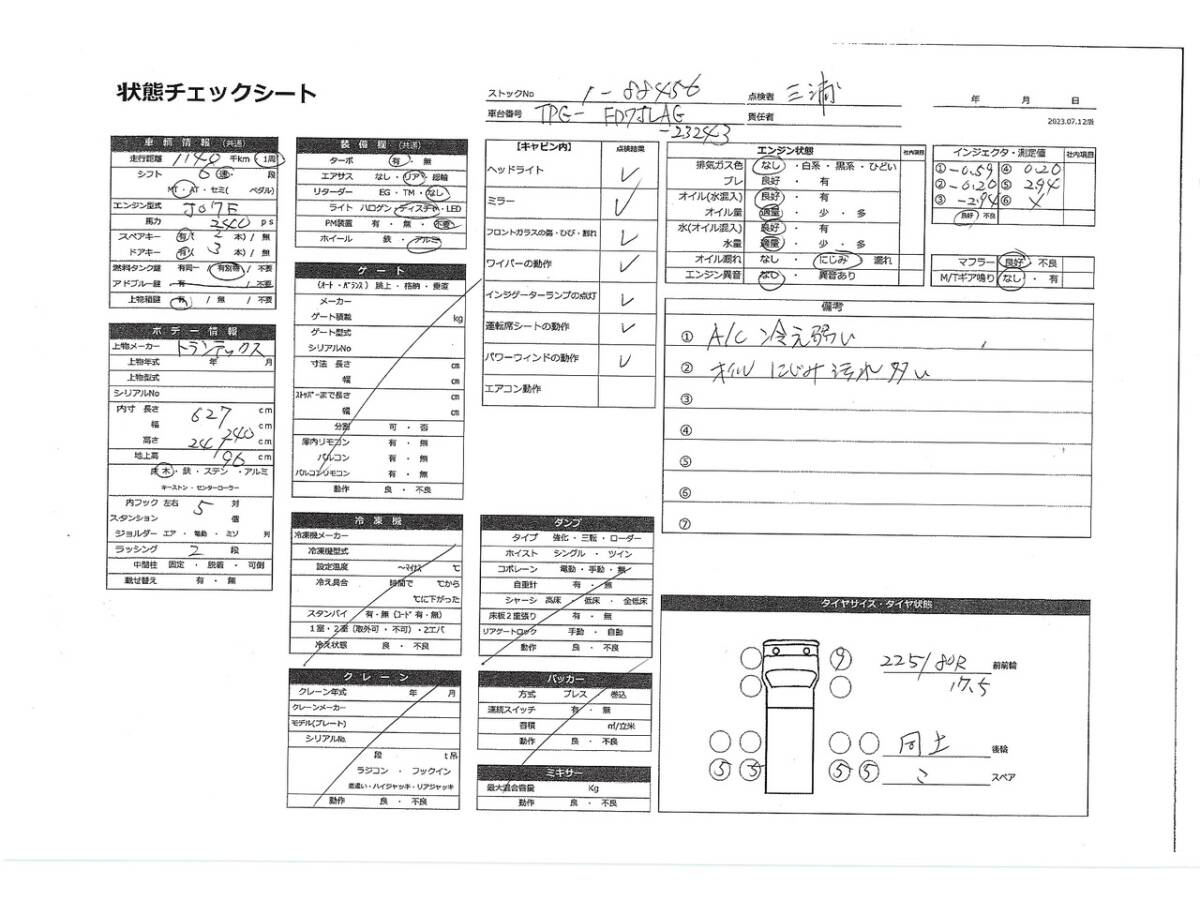 状態チェックシート
ストックNo 1-88456 点検者 三浦
年 月 日
車台番号 TPG-FD7JLAG 責任者
-23243
2023.07.12版
車輌情報 (共通)
走行距離 1140 千km (1周)
シフト 6 速・ 段
MT・AT・セミ( ペダル)
エンジン型式 J07E
馬力 240 ps
スペアキー 有( 2 本) / 無
ドアキー 有( 3 本) / 無
燃料タンク鍵 有同一 / 有別物 / 不要
アドブルー鍵 有 / 不要
上物箱鍵 有 / 無 / 不要
ボデー情報
上物メーカー トランテックス
上物年式 年 月
上物型式
シリアルNo
内寸 長さ 627 cm
幅 240 cm
高さ 241 cm
地上高 96 cm
床 木・鉄・ステン・アルミ
キーストン・センターローラー
内フック 左右 5 対
スタンション 個
ジョルダー エア・電動・ミゾ 列
ラッシング 2 段
中間柱 固定・脱着・可倒
載せ替え 有・無
装備欄 (共通)
ターボ 有・無
エアサス なし・リア・総輪
リターダー EG・TM・なし
ライト ハロゲン・ディスチャ・LED
PM装置 有・無・不要
ホイール 鉄・アルミ
ゲート
(オート・バランス) 跳上・格納・垂直
メーカー
ゲート積載 kg
ゲート型式
シリアルNo
寸法 長さ cm
幅 cm
ストッパーまで長さ cm
幅 cm
分割 可・否
庫内リモコン 有・無
バルコン 有・無
バルコンリモコン 有・無
動作 良・不良
冷凍機
冷凍機メーカー
冷凍機型式
設定温度 ～マイナス ℃
冷え具合 時間で ℃から
℃に下がった
スタンバイ 有・無 (コード 有・無)
1室・2室 (取外可・不可)・2エバ
冷え状態 良・不良
クレーン
クレーン年式 年 月
クレーンメーカー
モデル(プレート)
シリアルNo.
段 t吊
ラジコン・フックイン
差違い・ハイジャッキ・リアジャッキ
動作 良・不良
【キャビン内】 点検結果
ヘッドライト ✓
ミラー ✓
フロントガラスの傷・ひび・割れ ✓
ワイパーの動作 ✓
インジゲーターランプの点灯 ✓
運転席シートの動作 ✓
パワーウィンドの動作 ✓
エアコン動作
ダンプ
タイプ 強化・三転・ローダー
ホイスト シングル・ツイン
コボレーン 電動・手動・無
自重計 有・無
シャーシ 高床・低床・全低床
床板2重張り 有・無
リアゲートロック 手動・自動
動作 良・不良
パッカー
方式 プレス 巻込
連続スイッチ 有・無
容積 ㎥/立米
動作 良・不良
ミキサー
最大混合容量 Kg
動作 良・不良
エンジン状態 社内項目
排気ガス色 なし・白系・黒系・ひどい
ブレ 良好・有
オイル(水混入) 良好・有
オイル量 適量・少・多
水(オイル混入) 良好・有
水量 適量・少・多
オイル漏れ なし・にじみ・漏れ
エンジン異音 なし・異音あり
インジェクタ・測定値 社内項目
① -0.59 ④ 0.20
② -0.20 ⑤ 2.94
③ -2.94 ⑥ ✓
良好 不良
マフラー 良好・不良
M/Tギア鳴り なし・有
備考
① A/C 冷え弱い
② オイル にじみ 汚れ多い
③
④
⑤
⑥
⑦
タイヤサイズ・タイヤ状態
9 225/80R 前前輪
17.5
同上 後輪
5 5 5 5 スペア